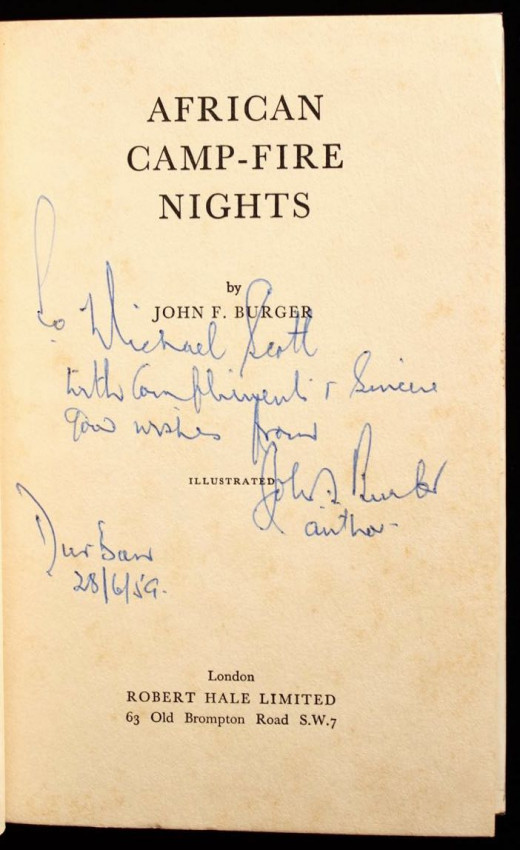 AFRICAN
CAMP-FIRE
NIGHTS
by
JOHN F. BURGER
To Michael Scott
with Compliments & Sincere
good wishes from
ILLUSTRATED
John F. Burger
author
Durban
28/6/59.
London
ROBERT HALE LIMITED
63 Old Brompton Road S.W.7